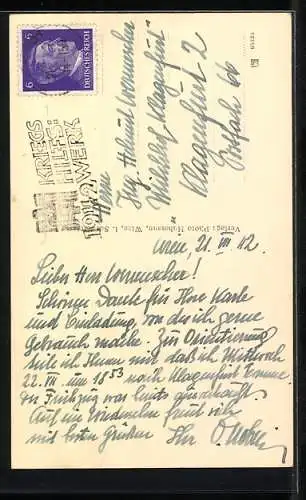 6 6
DEUTSCHES REICH
KRIEGS
HILFS
WERK
1941/42
Herrn
Ing. Helmut
Klagenfurt
Klagenfurt 2
Postfach 66
Verlag: Photo Hofmann, Wien, I.
Wien, 21. VII 42
Lieber Herr
Schönen Dank für Ihre Karte
und Einladung, von der ich gerne
Gebrauch mache. Zur Orientierung
teile ich Ihnen mit, daß ich Mittwoch
22. VII. um 18 53 nach Klagenfurt komme.
Der Frühzug war
Auf ein freut sich
mit besten Grüßen Ihr